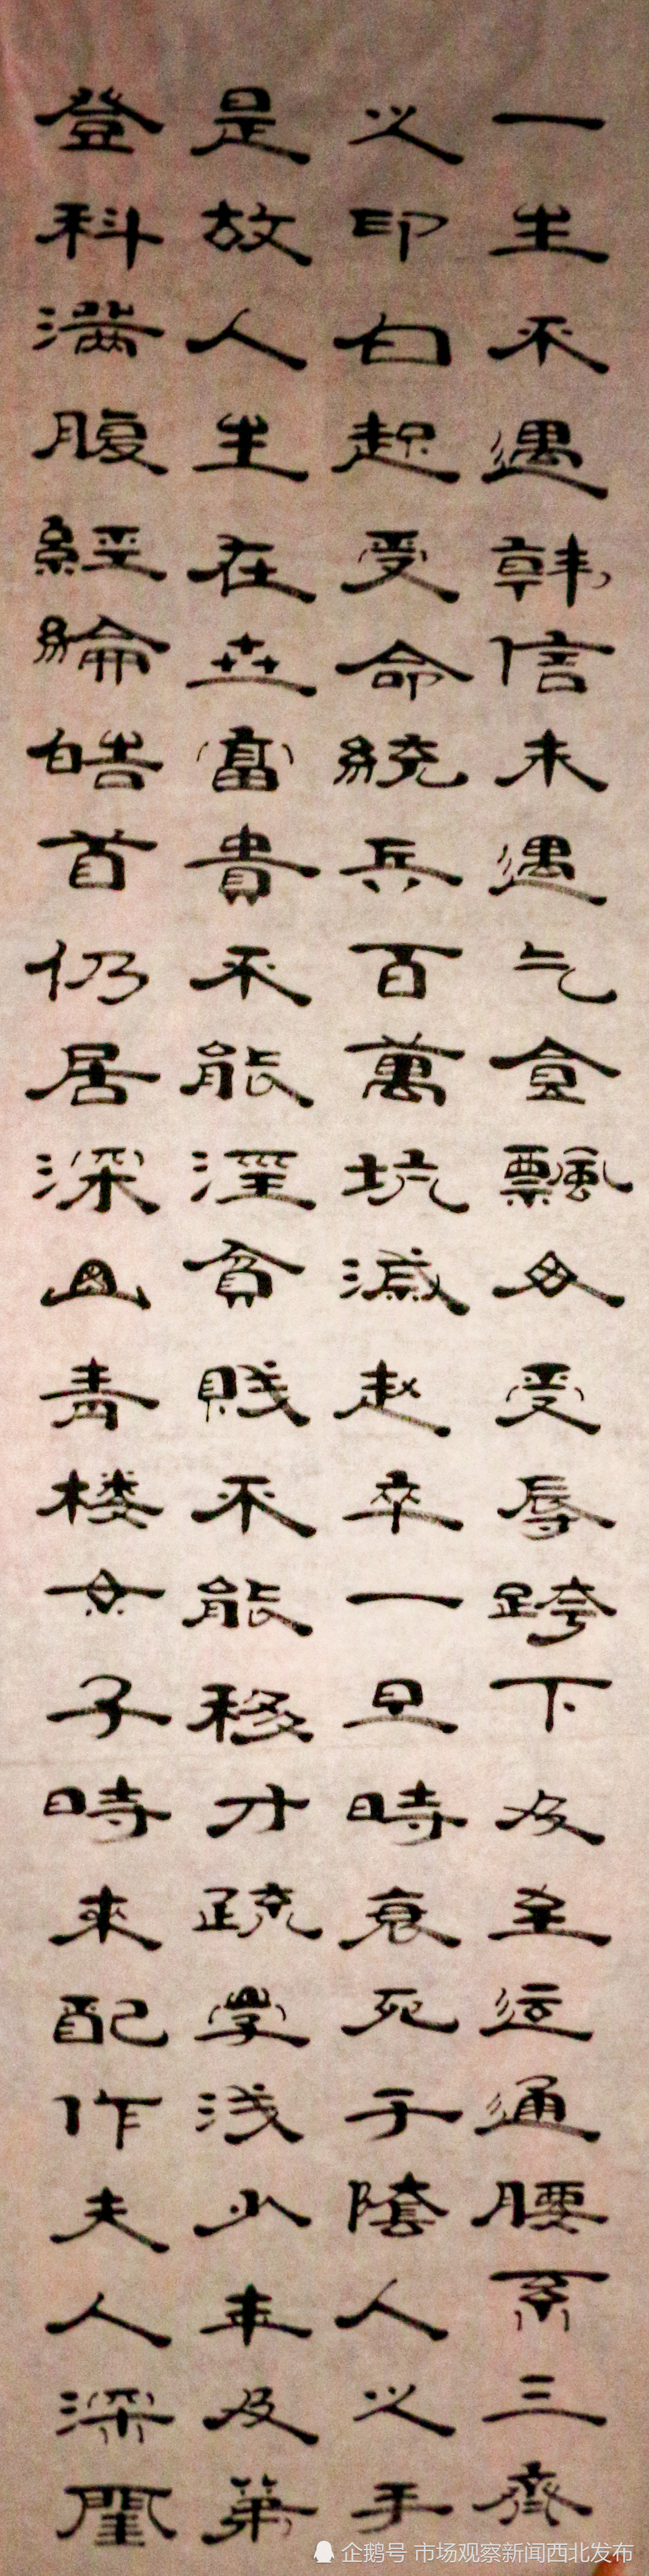 一生不遇韓信未遇乞食飄母受辱跨下及至运通腰系三齊
之印白起受命統兵百萬坑滅赵卒一旦時衰死于陰人之手
是故人生在世富貴不能淫貧賤不能移才疏学浅少年及第
登科满腹經綸皓首仍居深山青楼女子時来配作夫人深閨
企鹅号 市场观察新闻西北发布